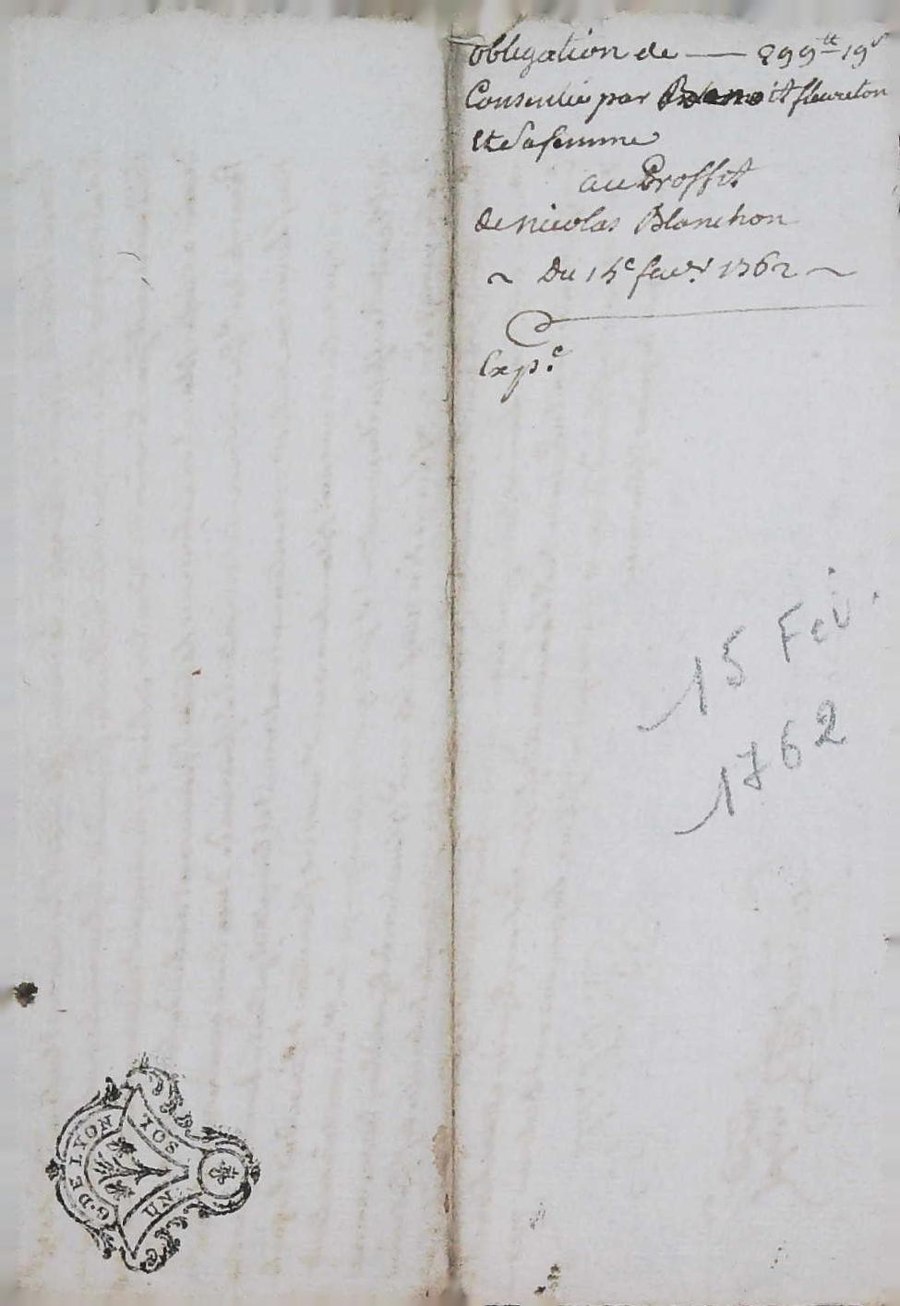 obligation de —— 299ᵗᵗ 19ˢ
Consentie par Benoit fleureton
Et Sa femme
au Proffit
de nicolas Blanchon
~ Du 15ᵉ fevʳ 1762 ~
Expᵉ
15 Fev.
1762
G. DE LYON
UN SOL